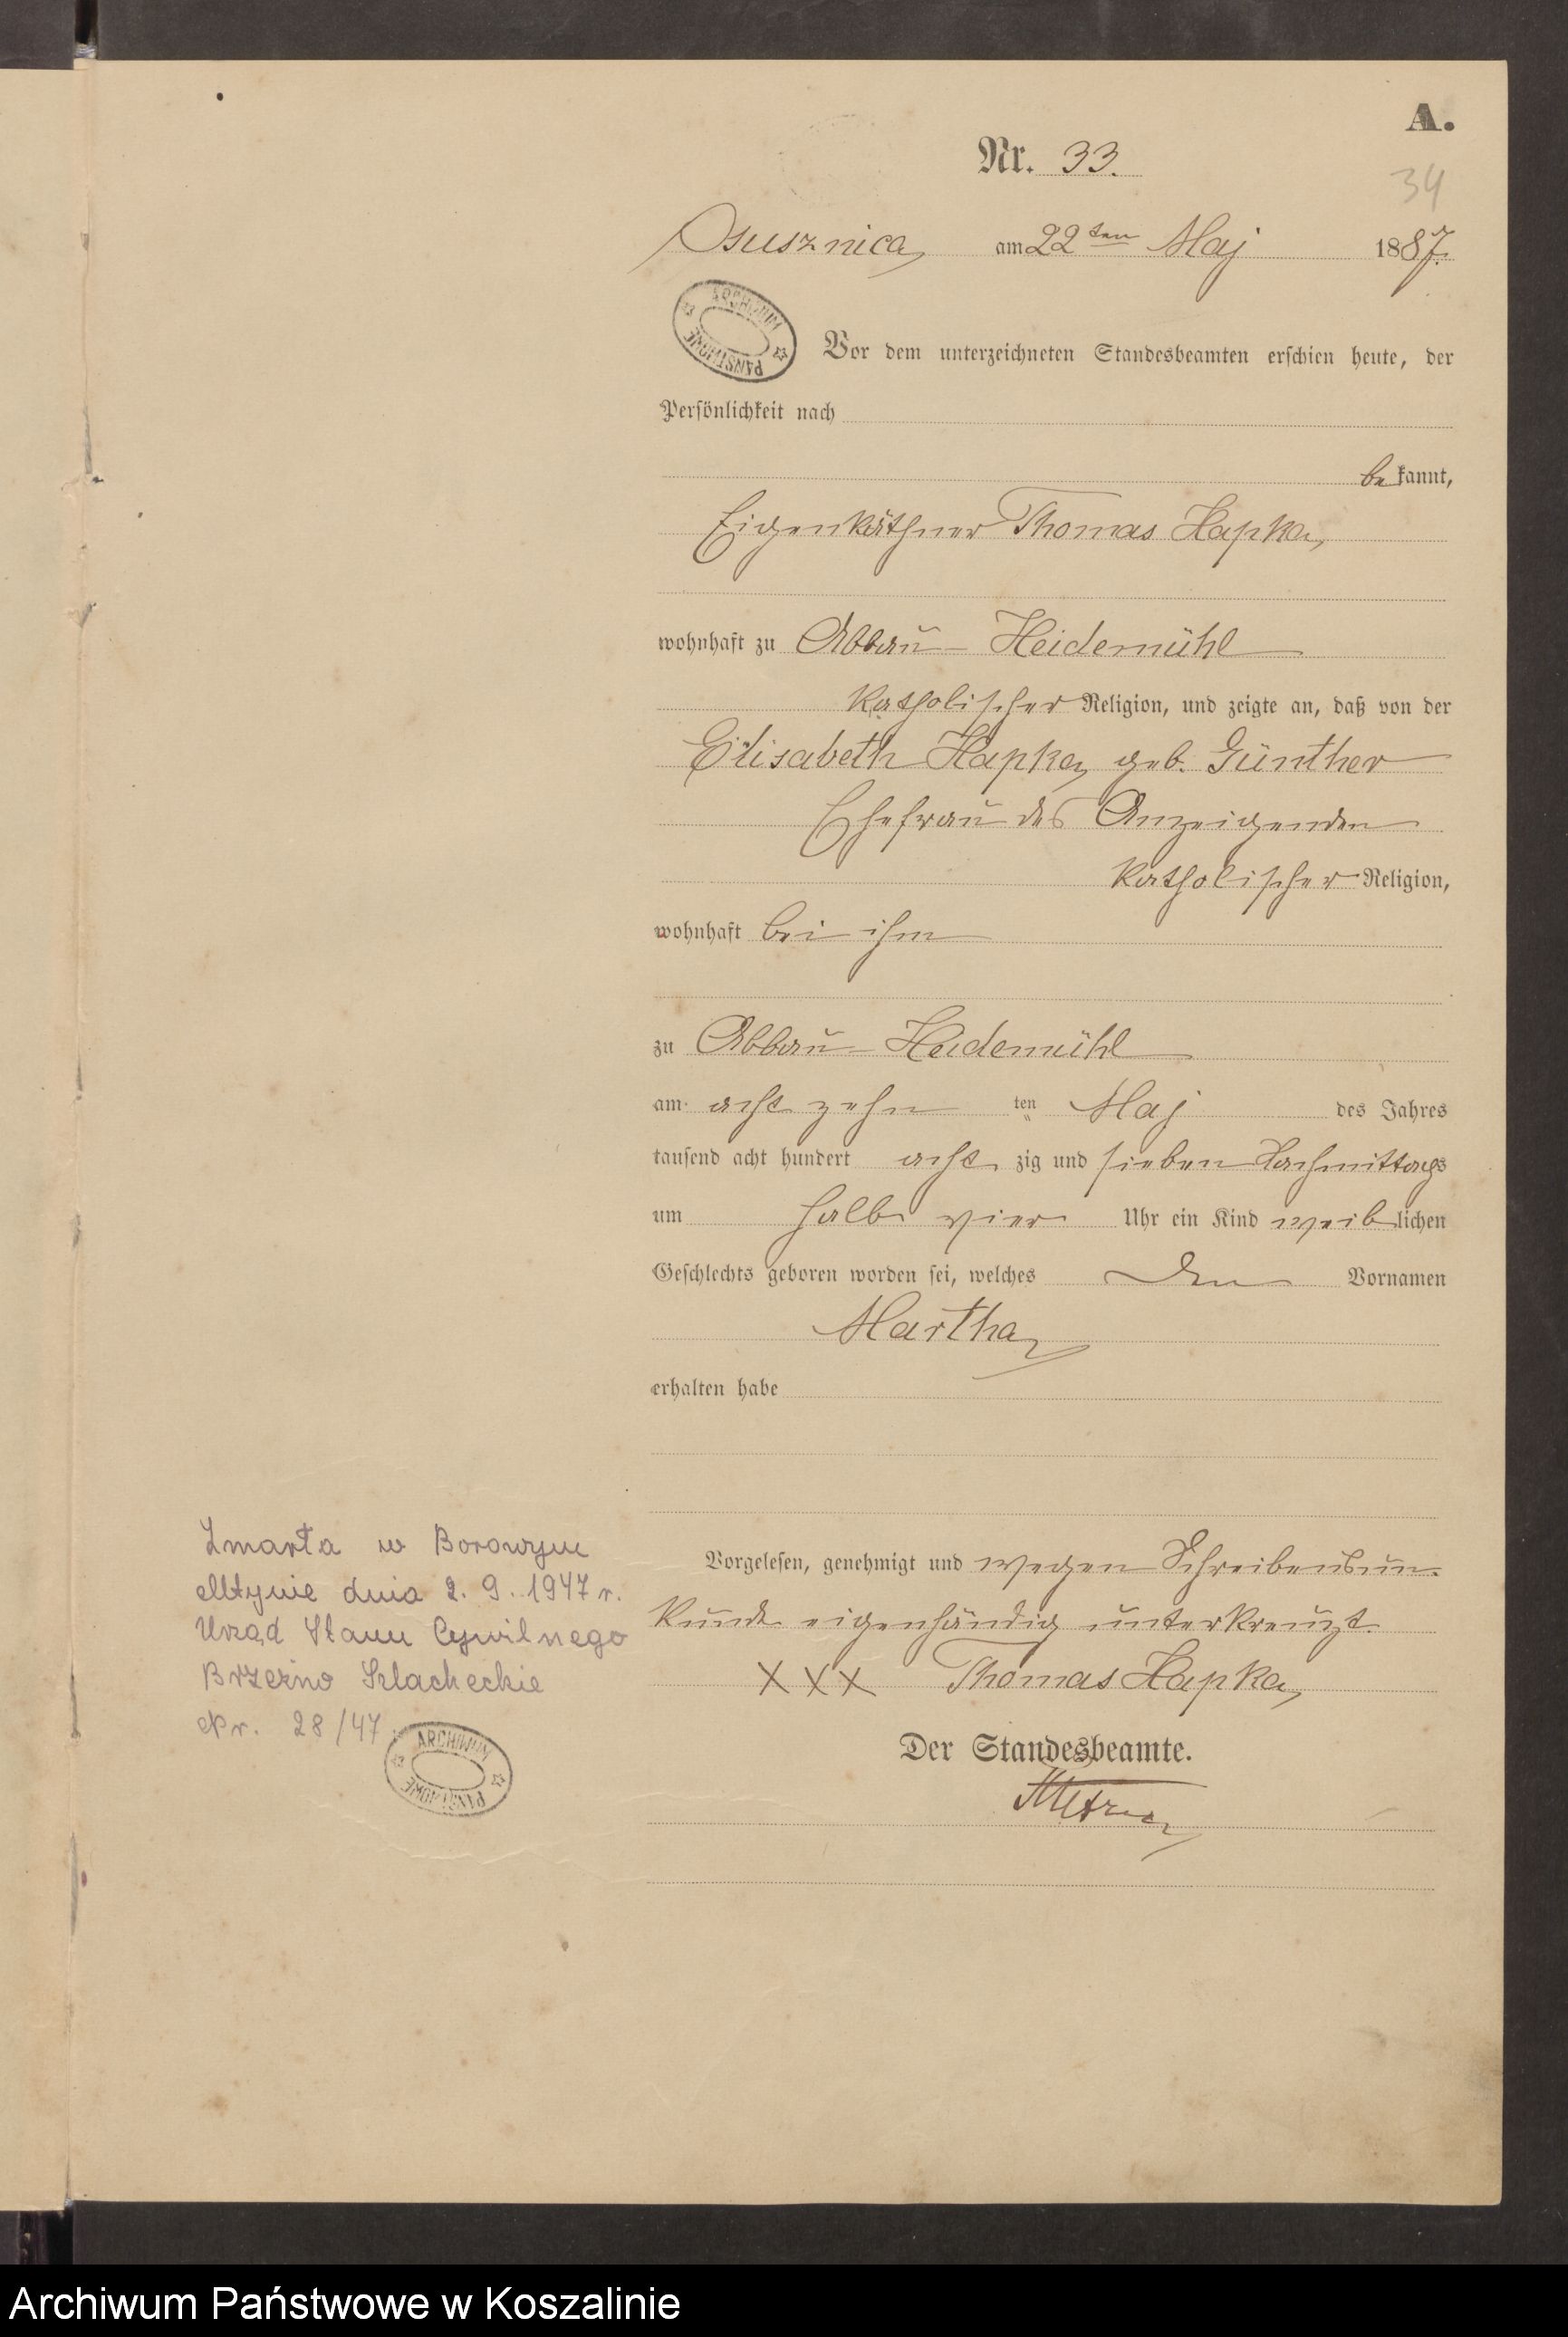 A.
Nr. 33.
34
Osusznica am 22ten Maj 1887.
ARCHIWUM PAŃSTWOWE
Vor dem unterzeichneten Standesbeamten erschien heute, der
Persönlichkeit nach
bekannt,
Eigenkäthner Thomas Hapka,
wohnhaft zu Abbau-Heidemühl
katholischer Religion, und zeigte an, daß von der
Elisabeth Hapka geb. Günther
Ehefrau des Anzeigenden
katholischer Religion,
wohnhaft bei ihm
zu Abbau-Heidemühl
am achtzehn ten Maj des Jahres
tausend acht hundert acht zig und sieben Nachmittags
um halb vier Uhr ein Kind weiblichen
Geschlechts geboren worden sei, welches den Vornamen
Martha
erhalten habe
Vorgelesen, genehmigt und wegen Schreibensun-
kunde eigenhändig unterkreuzt.
XXX Thomas Hapka
Der Standesbeamte.
Zmarła w Borowym
Młynie dnia 2. 9. 1947 r.
Urząd Stanu Cywilnego
Brzeźno Szlacheckie
Nr. 28/47
ARCHIWUM PAŃSTWOWE
Archiwum Państwowe w Koszalinie